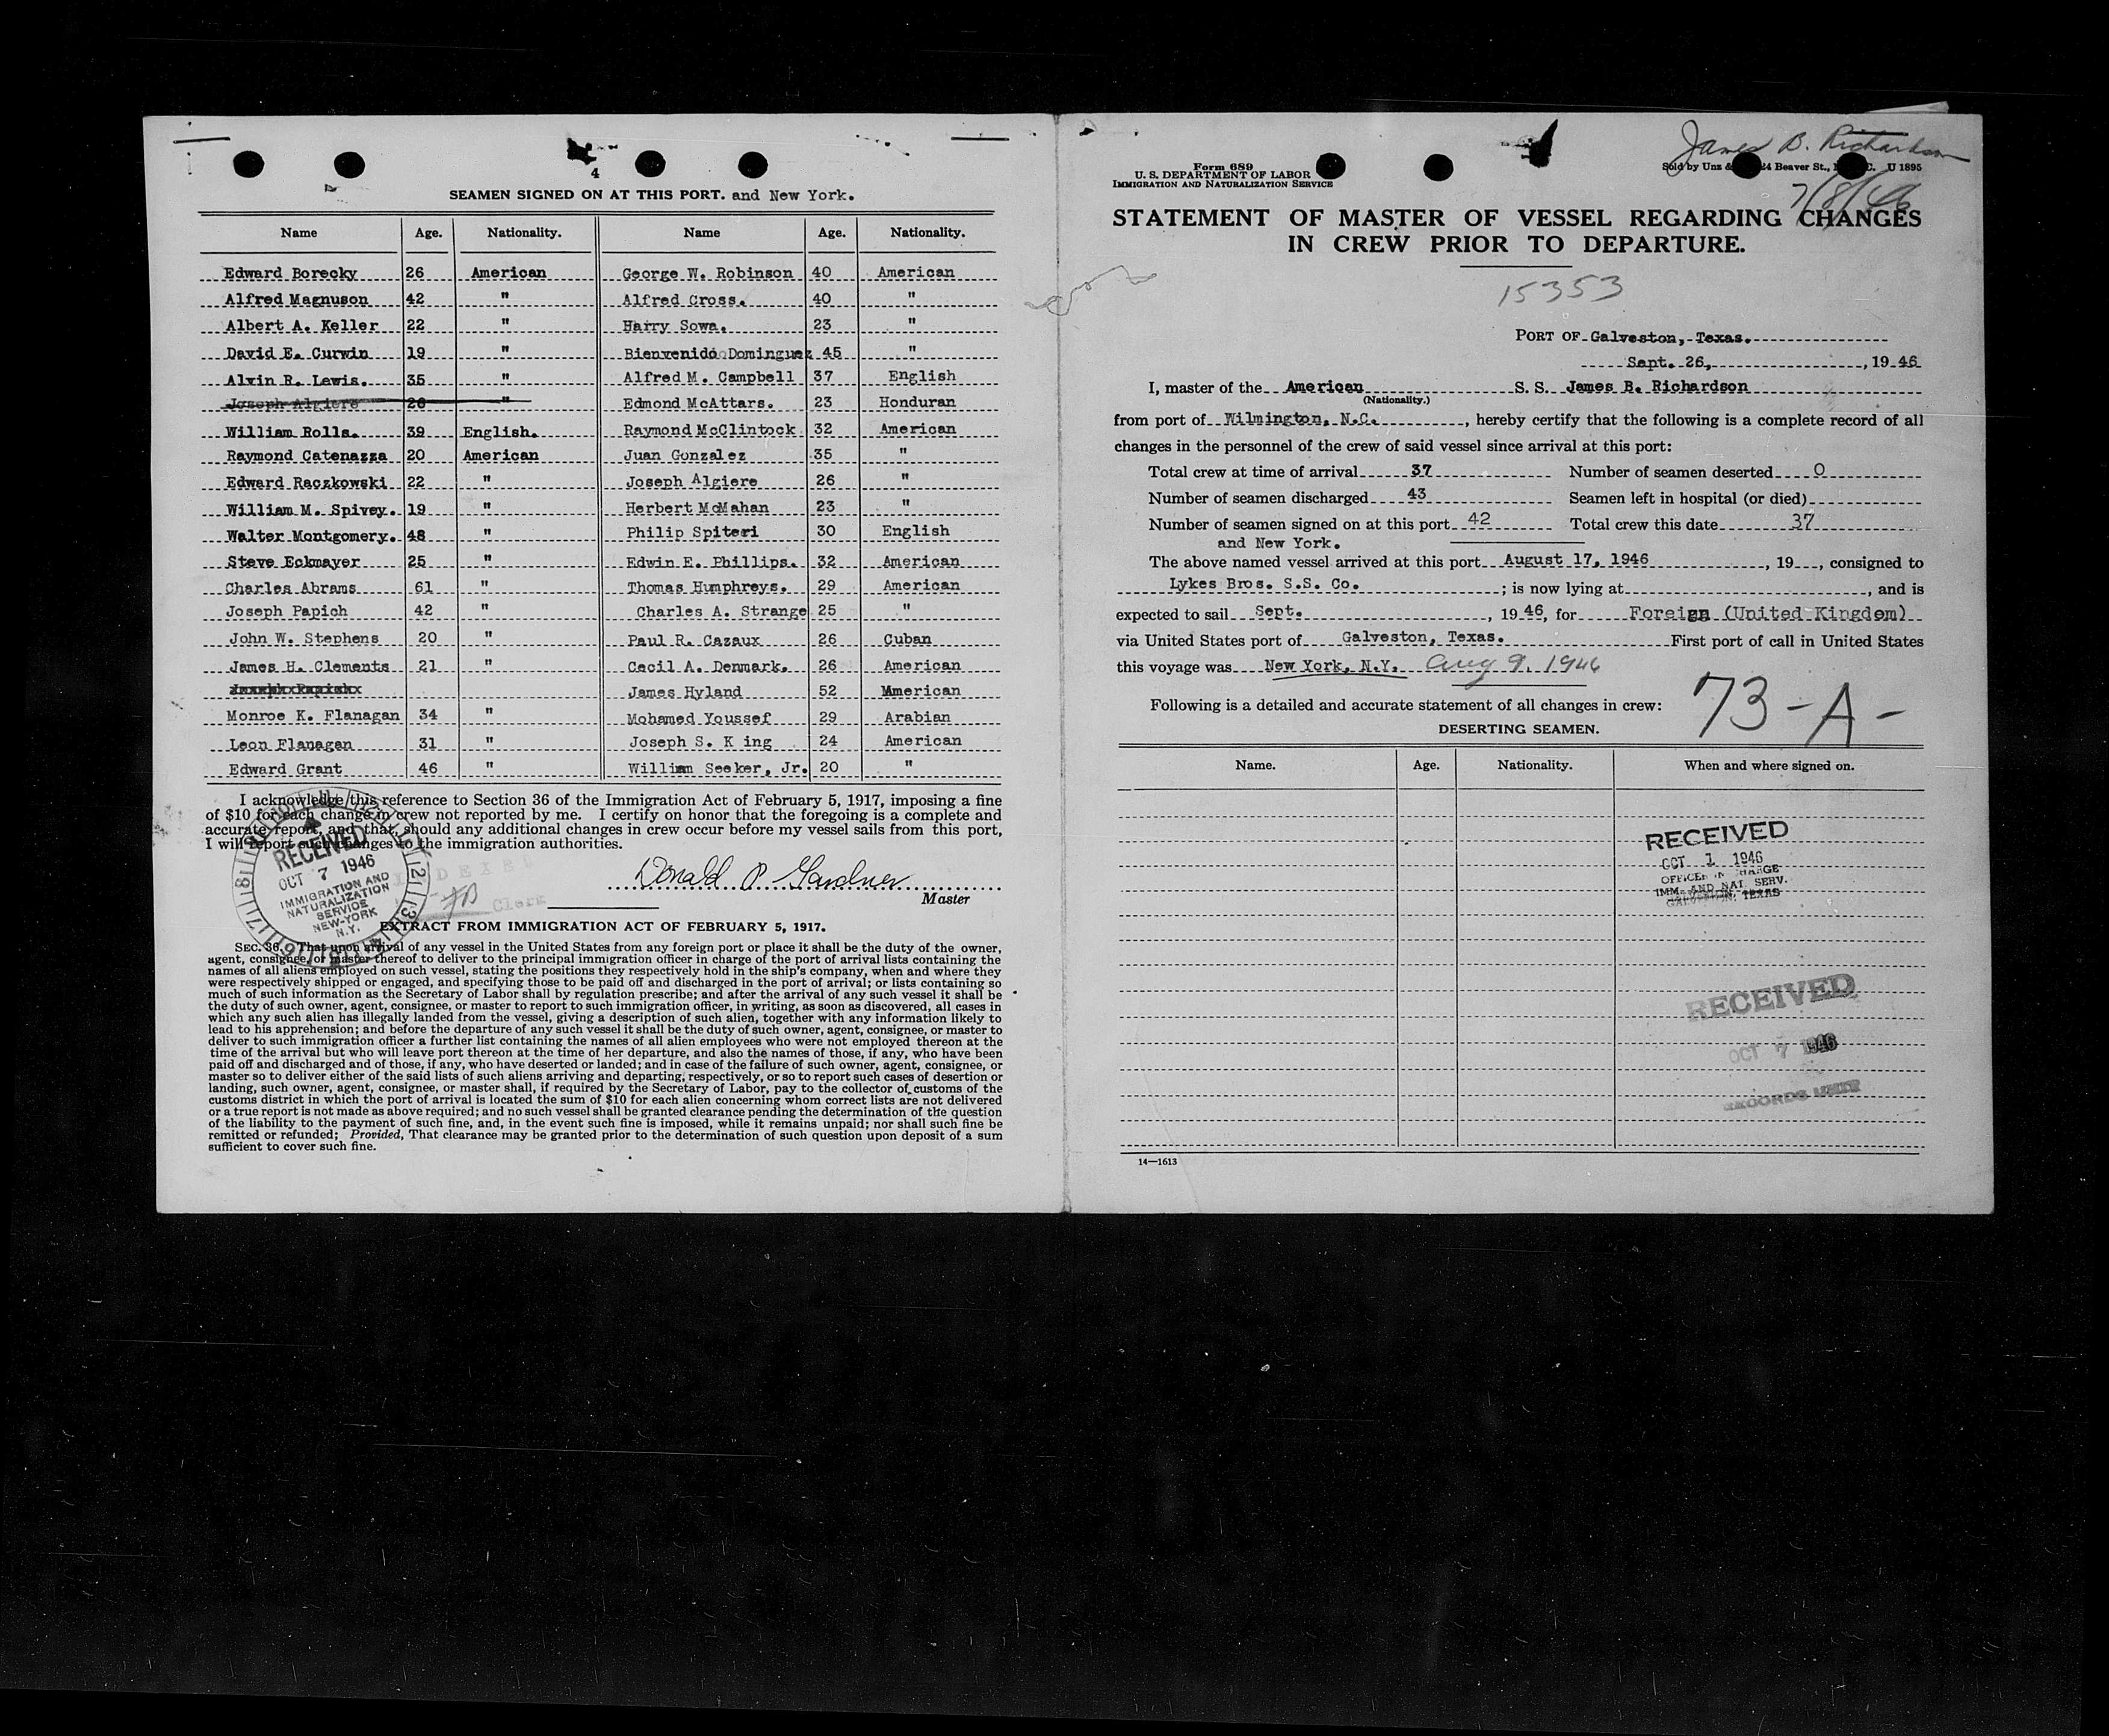 4
SEAMEN SIGNED ON AT THIS PORT. and New York.
Name Age. Nationality. Name Age. Nationality.
Edward Borecky 26 American George W. Robinson 40 American
Alfred Magnuson 42 " Alfred Cross. 40 "
Albert A. Keller 22 " Harry Sowa. 23 "
David E. Curwin 19 " Bienvenido Dominguez 45 "
Alvin R. Lewis. 35 " Alfred M. Campbell 37 English
Joseph Algiere 26 " Edmond McAttars. 23 Honduran
William Rolls. 39 English. Raymond McClintock 32 American
Raymond Catenazza 20 American Juan Gonzalez 35 "
Edward Raczkowski 22 " Joseph Algiere 26 "
William M. Spivey. 19 " Herbert McMahan 23 "
Walter Montgomery. 48 " Philip Spiteri 30 English
Steve Eckmayer 25 " Edwin E. Phillips. 32 American
Charles Abrams 61 " Thomas Humphreys. 29 American
Joseph Papich 42 " Charles A. Strange 25 "
John W. Stephens 20 " Paul R. Cazaux 26 Cuban
James H. Clements 21 " Cecil A. Denmark. 26 American
James Hyland 52 American
Monroe K. Flanagan 34 " Mohamed Youssef 29 Arabian
Leon Flanagan 31 " Joseph S. K ing 24 American
Edward Grant 46 " William Seeker, Jr. 20 "
I acknowledge this reference to Section 36 of the Immigration Act of February 5, 1917, imposing a fine
of $10 for each change in crew not reported by me. I certify on honor that the foregoing is a complete and
accurate report, and that, should any additional changes in crew occur before my vessel sails from this port,
I will report such changes to the immigration authorities.
RECEIVED
OCT 7 1946
IMMIGRATION AND
NATURALIZATION
SERVICE
NEW-YORK
N.Y.
INDEXED
Clerk
Donald P. Gardner
Master
EXTRACT FROM IMMIGRATION ACT OF FEBRUARY 5, 1917.
SEC. 36. That upon arrival of any vessel in the United States from any foreign port or place it shall be the duty of the owner,
agent, consignee, or master thereof to deliver to the principal immigration officer in charge of the port of arrival lists containing the
names of all aliens employed on such vessel, stating the positions they respectively hold in the ship's company, when and where they
were respectively shipped or engaged, and specifying those to be paid off and discharged in the port of arrival; or lists containing so
much of such information as the Secretary of Labor shall by regulation prescribe; and after the arrival of any such vessel it shall be
the duty of such owner, agent, consignee, or master to report to such immigration officer, in writing, as soon as discovered, all cases in
which any such alien has illegally landed from the vessel, giving a description of such alien, together with any information likely to
lead to his apprehension; and before the departure of any such vessel it shall be the duty of such owner, agent, consignee, or master to
deliver to such immigration officer a further list containing the names of all alien employees who were not employed thereon at the
time of the arrival but who will leave port thereon at the time of her departure, and also the names of those, if any, who have been
paid off and discharged and of those, if any, who have deserted or landed; and in case of the failure of such owner, agent, consignee, or
master so to deliver either of the said lists of such aliens arriving and departing, respectively, or so to report such cases of desertion or
landing, such owner, agent, consignee, or master shall, if required by the Secretary of Labor, pay to the collector of customs of the
customs district in which the port of arrival is located the sum of $10 for each alien concerning whom correct lists are not delivered
or a true report is not made as above required; and no such vessel shall be granted clearance pending the determination of the question
of the liability to the payment of such fine, and, in the event such fine is imposed, while it remains unpaid; nor shall such fine be
remitted or refunded; Provided, That clearance may be granted prior to the determination of such question upon deposit of a sum
sufficient to cover such fine.
James B. Richardson
Form 689
U. S. DEPARTMENT OF LABOR
IMMIGRATION AND NATURALIZATION SERVICE
Sold by Unz & 24 Beaver St., N. C. U 1895
7/8/46
STATEMENT OF MASTER OF VESSEL REGARDING CHANGES
IN CREW PRIOR TO DEPARTURE.
15353
PORT OF Galveston, Texas.
Sept. 26, , 19 46
I, master of the American S. S. James B. Richardson
(Nationality.)
from port of Wilmington, N.C. , hereby certify that the following is a complete record of all
changes in the personnel of the crew of said vessel since arrival at this port:
Total crew at time of arrival 37 Number of seamen deserted 0
Number of seamen discharged 43 Seamen left in hospital (or died)
Number of seamen signed on at this port 42 Total crew this date 37
and New York.
The above named vessel arrived at this port August 17, 1946 , 19 , consigned to
Lykes Bros. S.S. Co. ; is now lying at , and is
expected to sail Sept. , 19 46, for Foreign (United Kingdom)
via United States port of Galveston, Texas. First port of call in United States
this voyage was New York, N.Y. Aug 9, 1946
Following is a detailed and accurate statement of all changes in crew:
73-A-
DESERTING SEAMEN.
Name. Age. Nationality. When and where signed on.
RECEIVED
OCT 1 1946
OFFICER IN CHARGE
IMM. AND NAT. SERV.
GALVESTON, TEXAS
RECEIVED
OCT 7 1946
RECORDS UNIT
14—1613